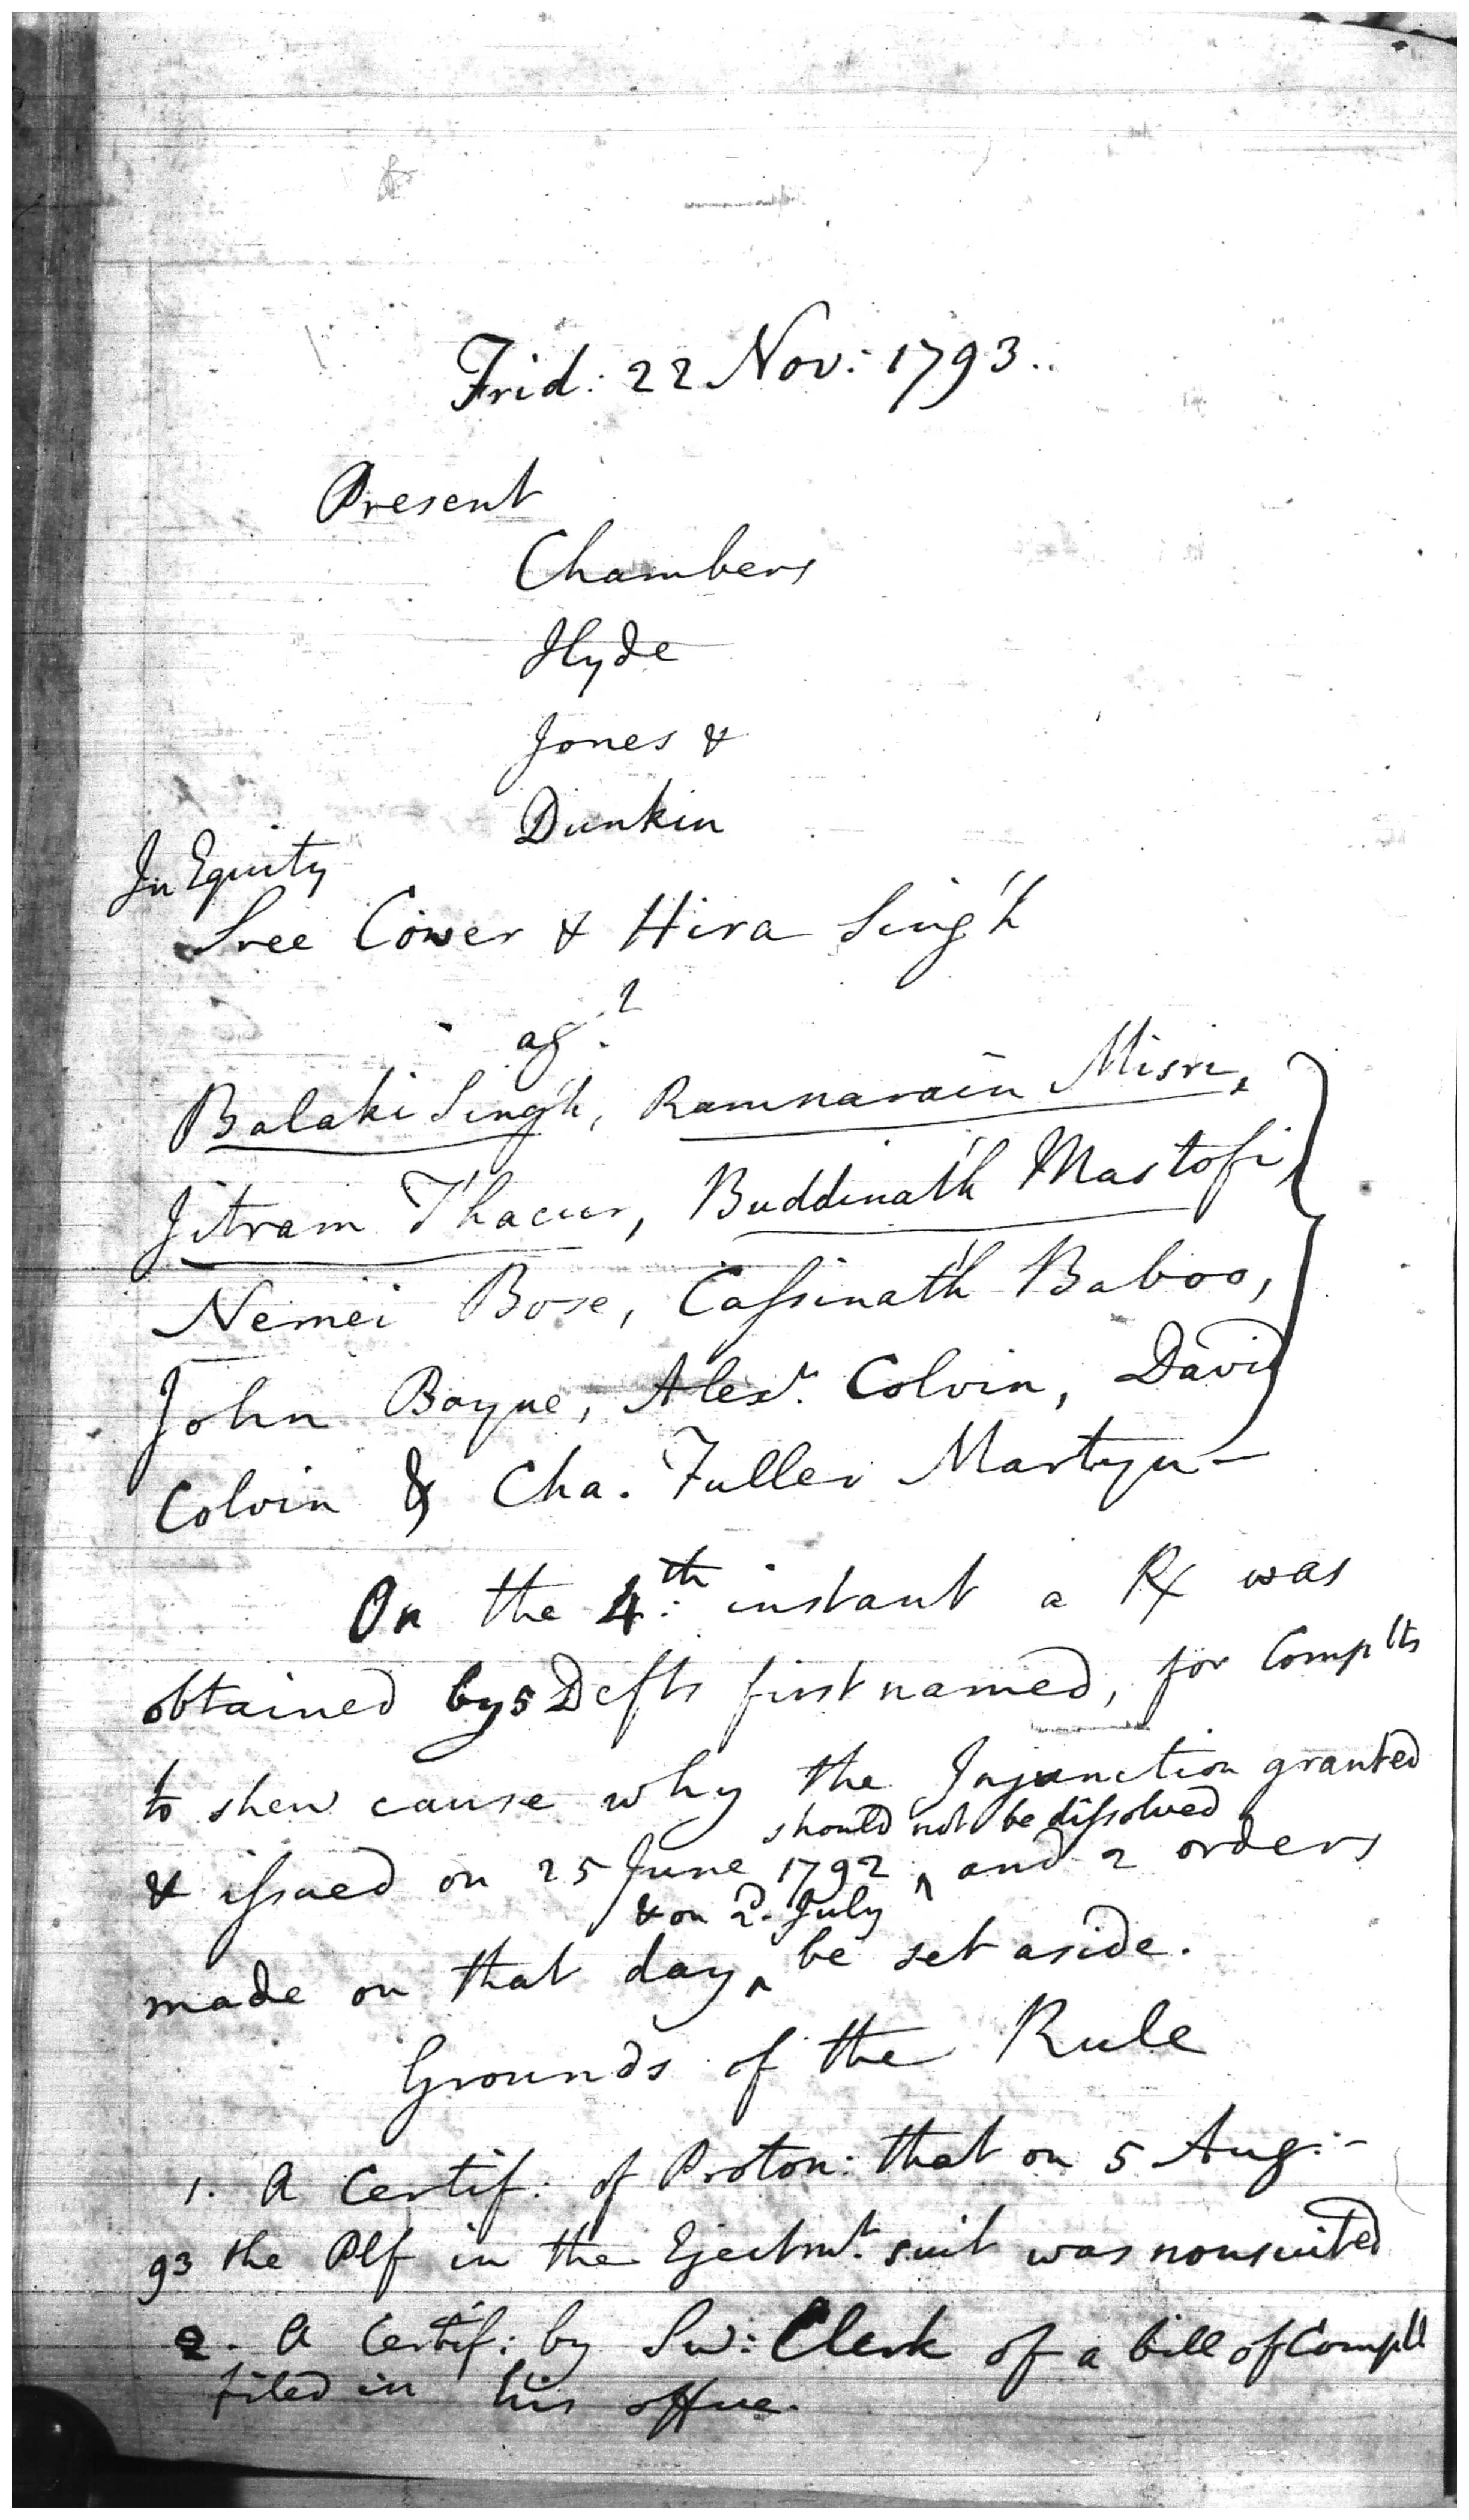 Frid: 22 Nov: 1793..
Present
Chambers
Hyde
Jones &
Dunkin
In Equity
Sree Cower & Hira Sing'h
ag.t
Balaki Sing'h, Ramnarain Misri,
Jitram T'hacur, Buddinat'h Mastofi,
Nemei Bose, Cassinat'h Baboo,
John Bayne, Alexr. Colvin, David
Colvin & Cha. Fuller Martyn
On the 4.th instant a R was
obtained by 5 Defts first named, for Complts
to shew cause why the Injunction granted
should not be dissolved
& issued on 25 June 1792 ^ and 2 orders
& on 2d. July
made on that day ^ be set aside.
Grounds of the Rule
1. A Certif: of Proton: that on 5 Aug:
93 the Plf in the Ejectmt. suit was nonsuited
2. A Certif: by Sw: Clerk of a bill of Complt
filed in his office.